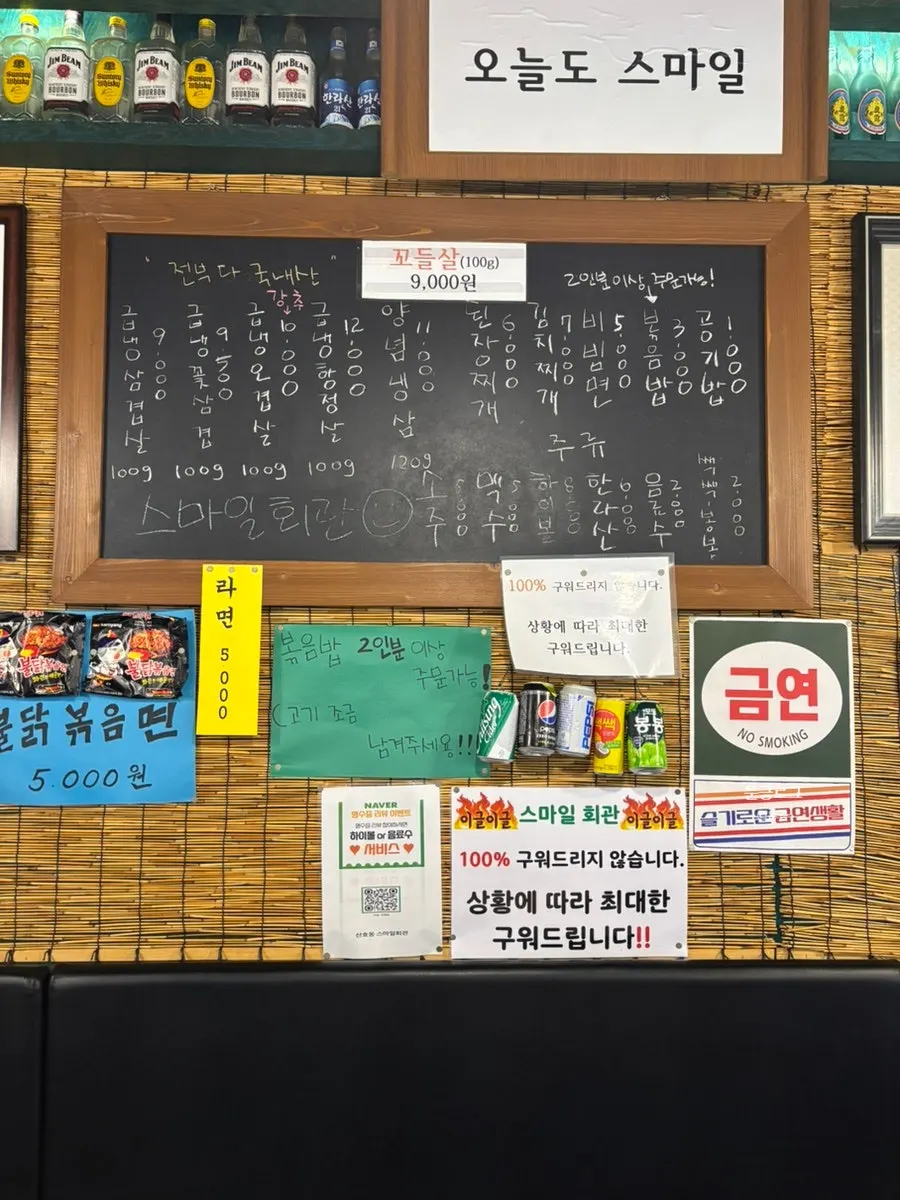 오늘도 스마일
Suntory
Whisky
JIM BEAM
BOURBON
Suntory
Whisky
JIM BEAM
BOURBON
Suntory
Whisky
JIM BEAM
BOURBON
JIM BEAM
BOURBON
한라산
21
한라산
21
" 전부 다 국내산 "
꼬들살(100g)
9,000원
2인분 이상 주문가능!
강추
급냉삼겹살 9.000 100g
급냉꽃삼겹 9.500 100g
급냉오겹살 10.000 100g
급냉항정살 12.000 100g
양념냉삼 11.000 120g
된장찌개 6.000
김치찌개 7.000
비빔면 5.000
볶음밥 3.000
공기밥 1.000
주류
소주 5.000
맥수 5.000
하이볼 8.000
한라산 6.000
음료수 2.000
쌕쌕봉봉 2.000
스마일회관
라면 5000
불닭볶음면
불닭볶음면
불닭 볶음면
5.000원
볶음밥 2인분 이상
주문가능!
(고기 조금
남겨주세용!!!
100% 구워드리지 않습니다.
상황에 따라 최대한
구워드립니다.
pepsi
PEPSI
쌕쌕
봉봉
금연
NO SMOKING
슬기로운 금연생활
NAVER
영수증 리뷰 이벤트
영수증 리뷰 참여하시면
하이볼 or 음료수
♥ 서비스 ♥
신효동 스마일회관
이글이글 스마일 회관 이글이글
100% 구워드리지 않습니다.
상황에 따라 최대한
구워드립니다!!